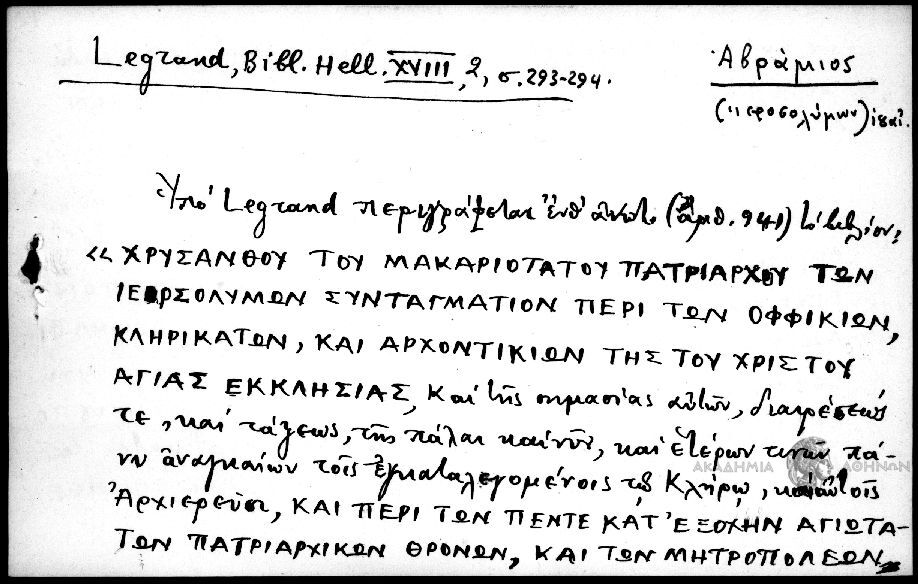 Legrand, Bibl. Hell. XVIII, 2, σ. 293-294.
Ἀβράμιος
(Ἱεροσολύμων)
Ὑπὸ Legrand περιγράφεται ἐνθ' ἀνωτ. (ἀριθ. 941) τὸ βιβλίον:
«ΧΡΥΣΑΝΘΟΥ ΤΟΥ ΜΑΚΑΡΙΟΤΑΤΟΥ ΠΑΤΡΙΑΡΧΟΥ ΤΩΝ
ΙΕΡΣΟΛΥΜΩΝ ΣΥΝΤΑΓΜΑΤΙΟΝ ΠΕΡΙ ΤΩΝ ΟΦΦΙΚΙΩΝ,
ΚΛΗΡΙΚΑΤΩΝ, ΚΑΙ ΑΡΧΟΝΤΙΚΙΩΝ ΤΗΣ ΤΟΥ ΧΡΙΣΤΟΥ
ΑΓΙΑΣ ΕΚΚΛΗΣΙΑΣ, Καὶ τῆς σημασίας αὐτῶν, διαιρέσεώς
τε, καὶ τάξεως, τῆς πάλαι καὶ νῦν, καὶ ἑτέρων τινῶν πά-
νυ ἀναγκαίων τοῖς ἐγκαταλεγομένοις τῷ Κλήρῳ, καὶ αὐτοῖς
Ἀρχιερεῦσι, ΚΑΙ ΠΕΡΙ ΤΩΝ ΠΕΝΤΕ ΚΑΤ' ΕΞΟΧΗΝ ΑΓΙΩΤΑ-
ΤΩΝ ΠΑΤΡΙΑΡΧΙΚΩΝ ΘΡΟΝΩΝ, ΚΑΙ ΤΩΝ ΜΗΤΡΟΠΟΛΕΩΝ
ΑΚΑΔΗΜΙΑ ΑΘΗΝΩΝ